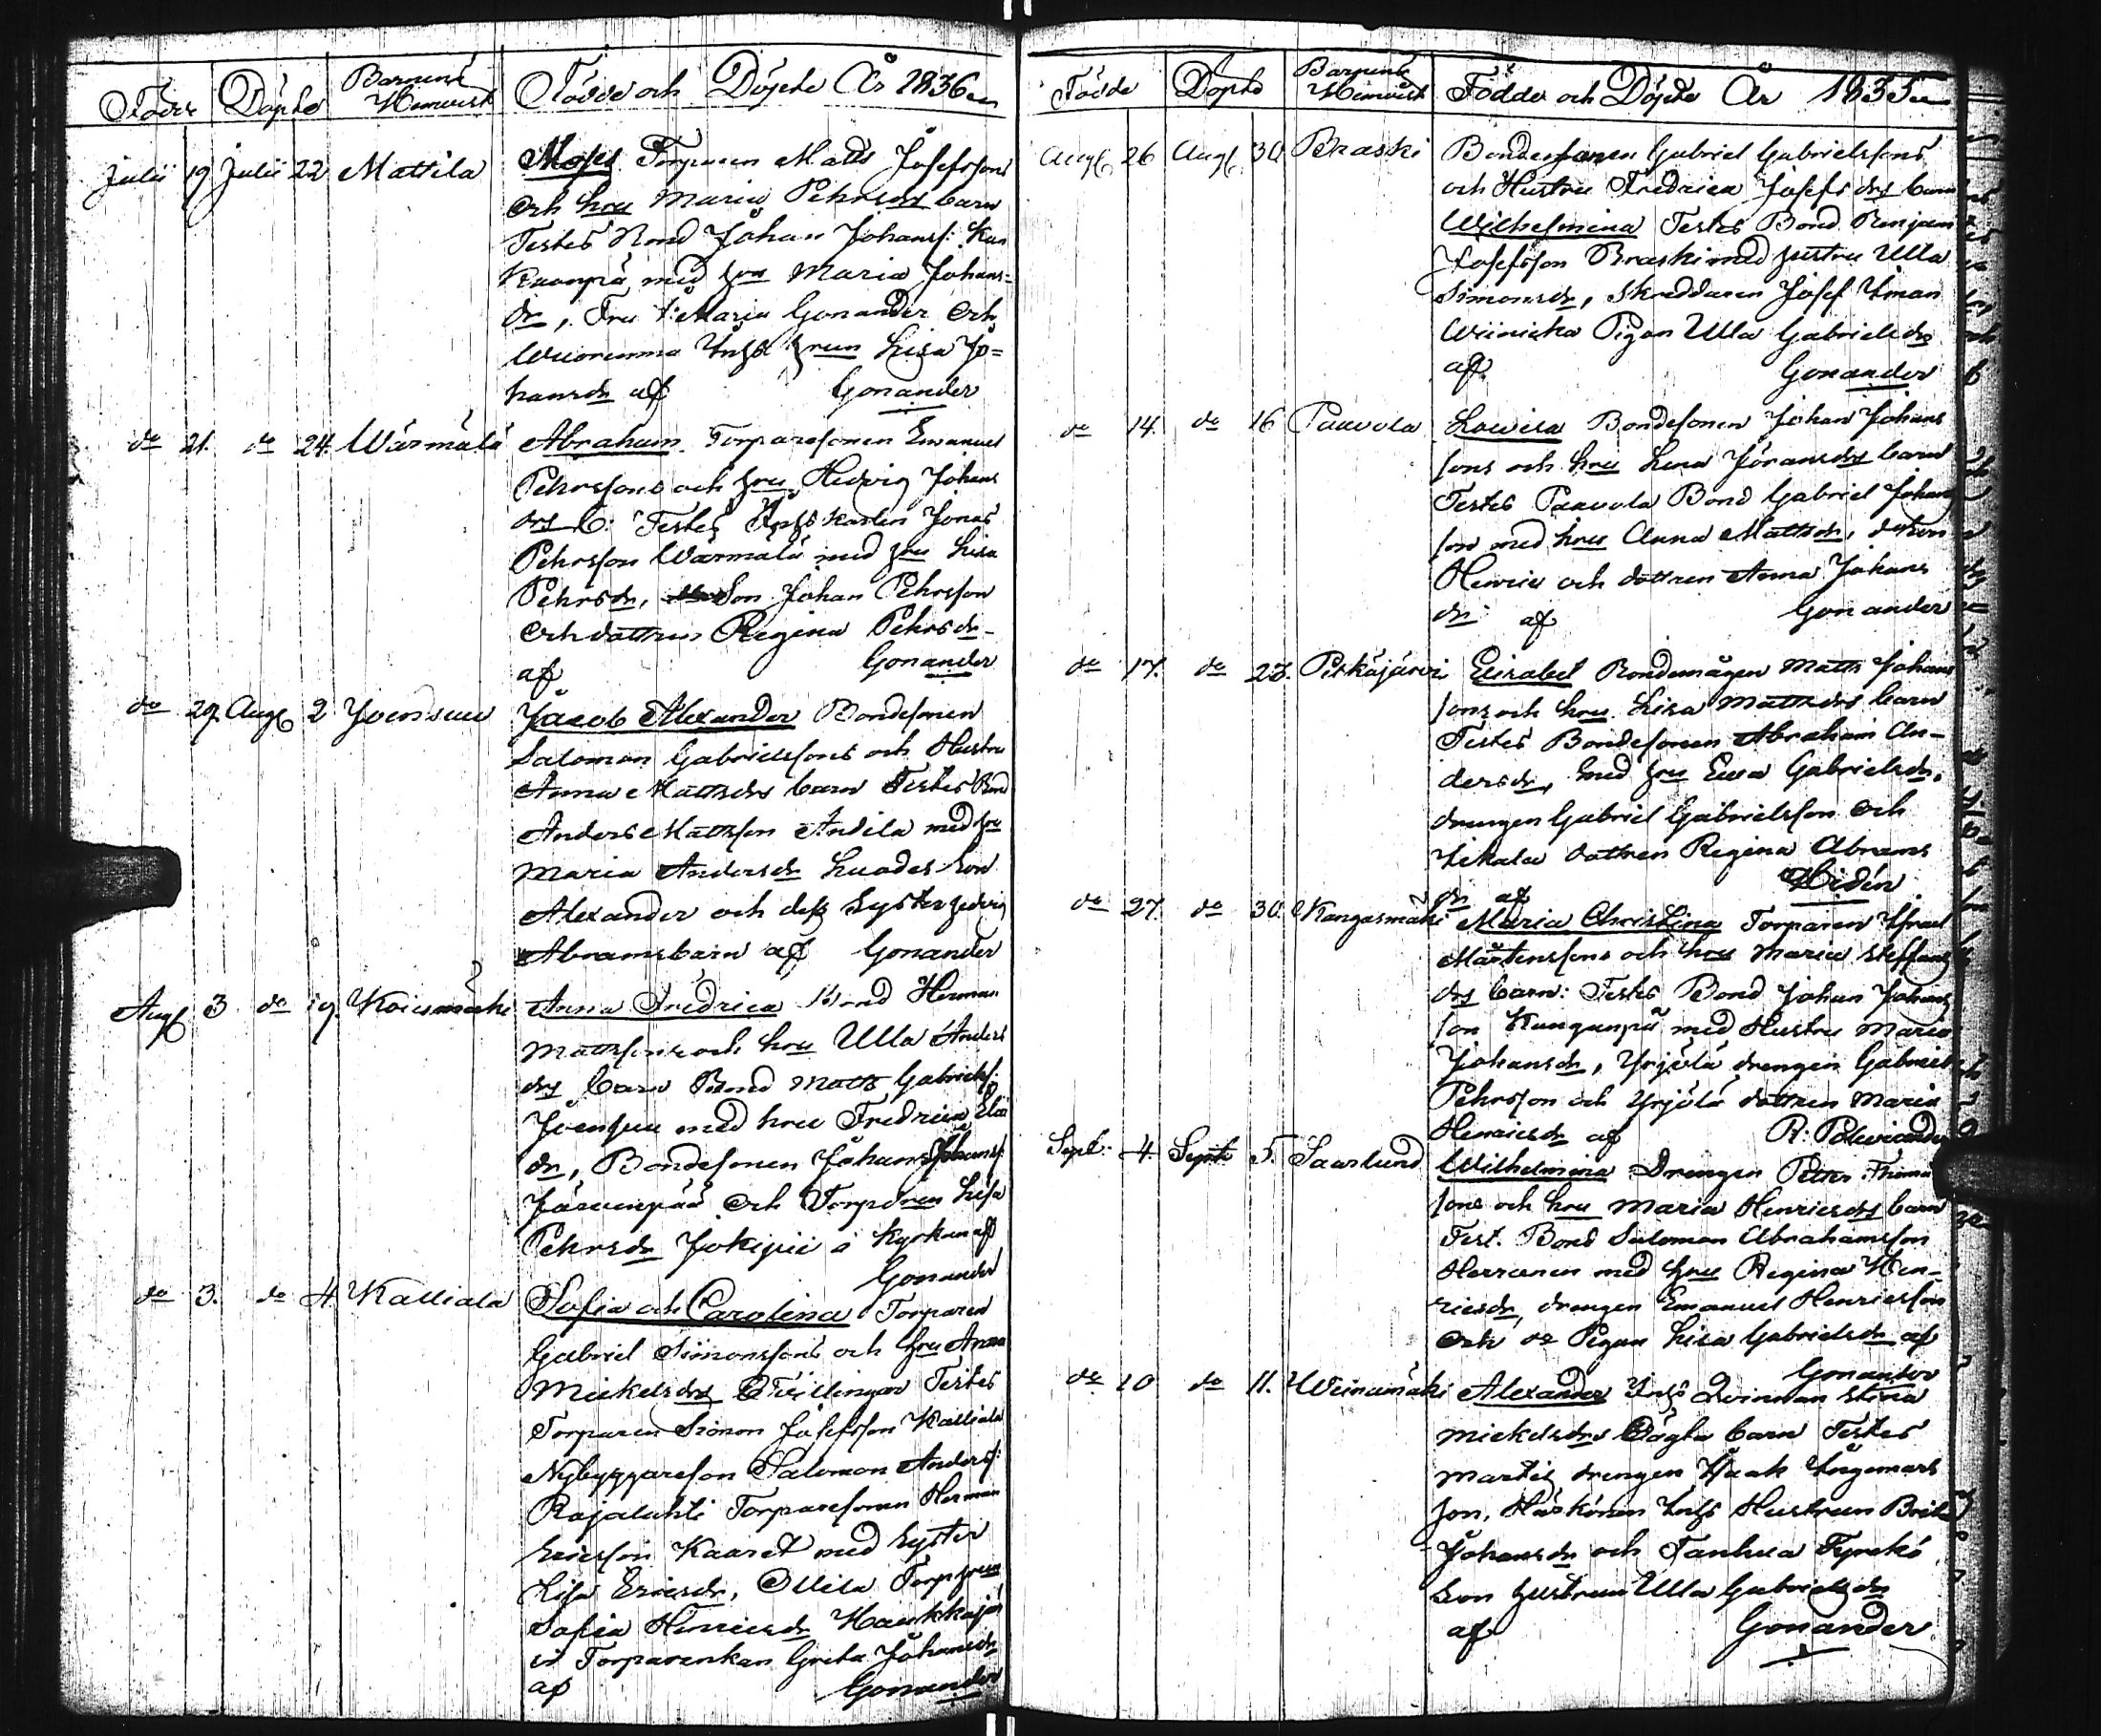 Födde Döpte Barnens Hemvist Födde och Döpte År 1836
Julii 19 Julii 22 Mattila Moses Torparen Matts Josefssons
och hru Maria Pehrsdrs barn
Testes Bond Johan Johans:
med hru Maria Johans=
dr, Fru Maria Gonander och
Wuorenma Inhs hrun Lisa Jo=
hansdr af Gonander
do 21. do 24. Wärmälä Abraham Torparesonen Emanuel
Pehrssons och hru Hedvig Johans
drs b: Testes Inhs karlen Jonas
Pehrsson Wärmälä med hru Lisa
Pehrsdr, Son Johan Pehrsson
och dottren Regina Pehrsdr
af Gonander
do 29. Aug 2 Joensuu Jacob Alexander Bondesonen
Salomon Gabrielssons och Hustru
Anna Mattsdrs barn Testes Bond
Anders Mattsson Andila med hru
Maria Andersdr Son
Alexander och dess Syster Hedvig
Abrams barn af Gonander
Aug 3 do 19. Koivumäki Anna Fredrica Bond Herman
Mattssons och hru Ulla Anders
drs barn Bond Matts Gabriels:
Joensuu med hru Fredrica Elia
dr, Bondesonen Johan Johans:
Järvenpää och Torpdren Lisa
Pehrsdr Jokipii i Kyrkan af
Gonander
do 3. do 4. Kalliala Sofia och Carolina Torparen
Gabriel Simonssons och hru Anna
Mickelsdrs Tvillingar Testes
Torparen Simon Josefsson Kalliala
Nybyggareson Salomon Anders:
Rajalahti Torparesonen Herman
Ericsson Kaaret med Syster
Lisa Ericsdr, Ollila Torp hrun
Sofia Henricsdr Haukkajär
vi Torparenkan Greta Johansdr
af Gonander
Födde Döpte Barnens Hemvist Födde och Döpte År 1835
Aug 26 Aug 30 Braski Bondesonen Gabriel Gabrielssons
och Hustru Fredrica Josefsdrs barn
Wilhelmina Testes Bond Benjam
Josefsson Braski med hustru Ulla
Simonsdr, Skreddaren Josef
Wiinicka Pigan Ulla Gabrielsdr
af Gonander
do 14. do 16 Paavola Lovisa Bondesonen Johan Johans
sons och hru Lena Göransdrs barn
Testes Paavola Bond Gabriel Johans
son med hru Anna Mattsdr,
Henric och dottren Anna Johans
dr af Gonander
do 17. do 23. Pitkäjärvi Elisabet Bondemågen Matts Johans
sons och hru Lisa Mattsdrs barn
Testes Bondesonen Abraham An-
dersdr, med hru Eva Gabrielsdr,
drengen Gabriel Gabrielsson och
dottren Regina Abrams
dr af Hidén
do 27. do 30. Kangasmäki Maria Christina Torparen Israel
Mårtenssons och hru Maria Steffans
drs barn: Testes Bond Johan Johans
son Kangaspä med Hustru Maria
Johansdr, Yrjölä drengen Gabriel
Pehrsson och Yrjölä dottren Maria
Henricsdr af R: Polviander
Sept: 4. Sept 5. Saarlund Wilhelmina Drengen Petter Thomas
sons och hru Maria Henricsdrs barn
Test. Bond Salomon Abrahamsson
Herranen med hru Regina Hen-
ricsdr, drengen Emanuel Henricsson
och do Pigan Lisa Gabrielsdr af
Gonander
do 10 do 11. Weinämäki Alexander Inhs Qvinnan Stina
Mickelsdrs Oägta barn Testes
Martis drengen Isaak Ingemars
son, Härkönen Inhs Hustrun Brita
Johansdr och Tanhua
Son hustrun Ulla Gabrielsdr
af Gonander